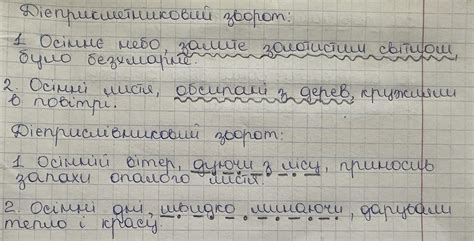 Дієприкметниковий зворот:
1. Осіннє небо, залите золотистим світлом,
було безхмарне.
2. Осінні листя, обсипані з дерев, кружляли
в повітрі.
Дієприслівниковий зворот:
1. Осінній вітер, дуючи з лісу, приносив
запахи опалого листя.
2. Осінні дні, швидко минаючи, дарували
тепло і красу.